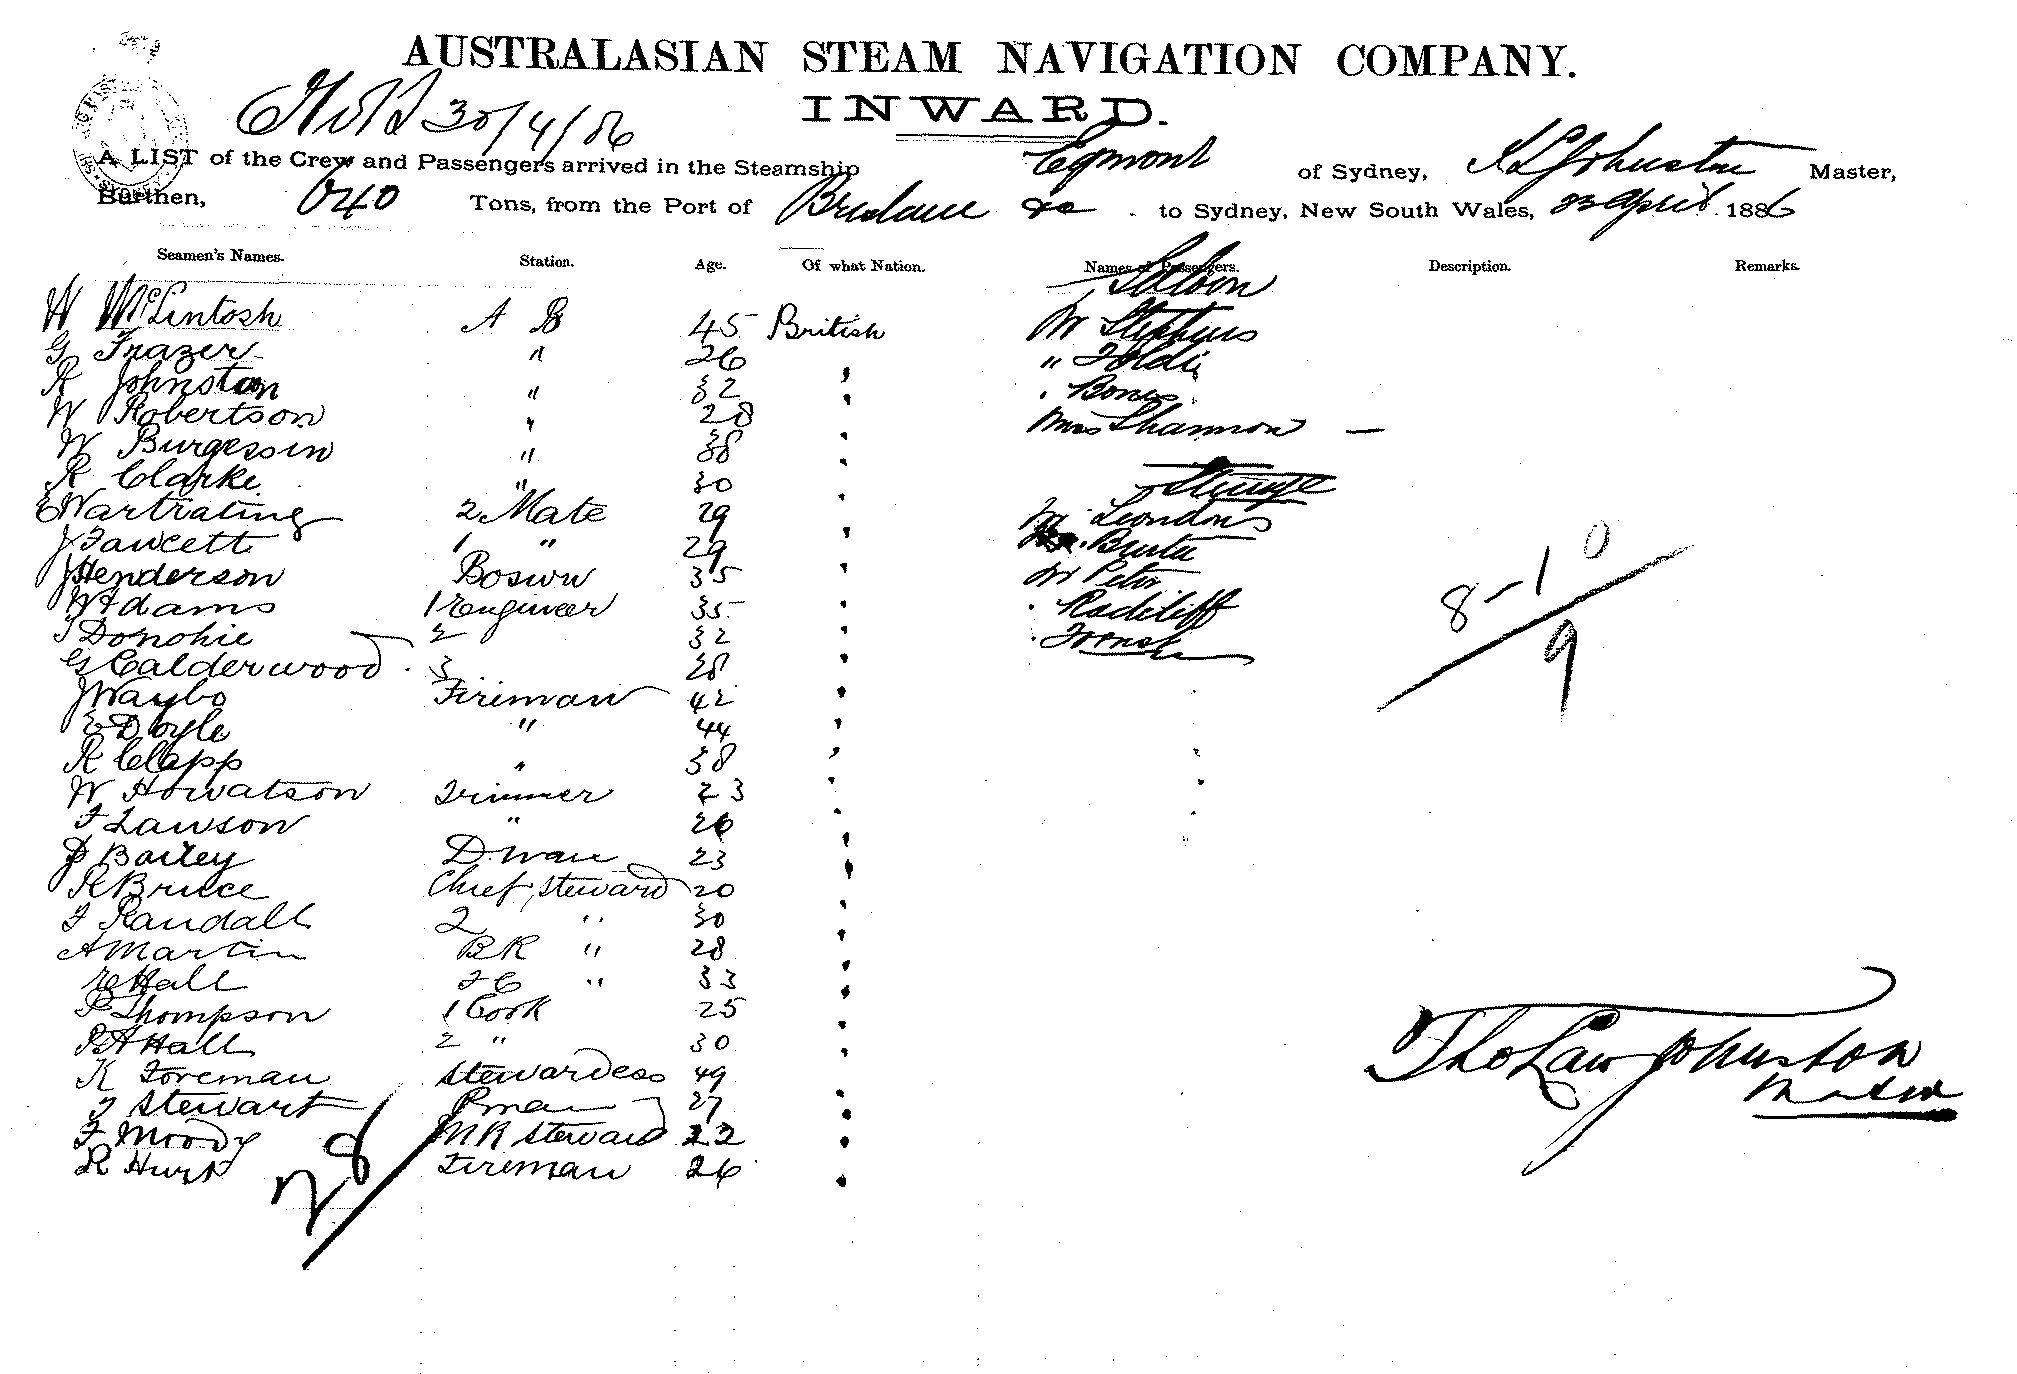 AUSTRALASIAN STEAM NAVIGATION COMPANY.
INWARD.
30/4/86
A LIST of the Crew and Passengers arrived in the Steamship Egmont of Sydney, Johnston Master,
Burthen, 640 Tons, from the Port of Brisbane &c to Sydney, New South Wales, 23 April 1886
Seamen's Names. Station. Age. Of what Nation. Names of Passengers. Description. Remarks.
Saloon
W McLintosh A B 45 British Mr Stephens
G Frazer " 26 "
R Johnston " 32 "
W Robertson " 28 " Mrs Shannon —
W Burgessin " 38 "
R Clarke " 30 " Steerage
E Wartrating 2 Mate 29 "
J Fawcett 1 " 29 "
J Henderson Boswn 35 " Mr Peter
W Adams 1 Engineer 35 " Radcliff
T Donohie 2 32 "
G Calderwood 3 38 "
J Waybo Fireman 42 "
E Doyle " 44 "
R Clapp " 38 "
W Howatson Trimmer 23 "
F Lawson " 26 "
Bailey D. man 23 "
R Bruce Chief Steward 20 "
F Randall 2 " 30 "
A Martin BR " 28 "
E Hall FC " 33 "
P Thompson 1 Cook 25 "
A Hall 2 " 30 "
K Foreman Stewardess 49 "
J Stewart Pman 27 "
F Moody MR Steward 22 "
R Hurt Fireman 26 "
28
8-10
9
Tho Law Johnston
Master